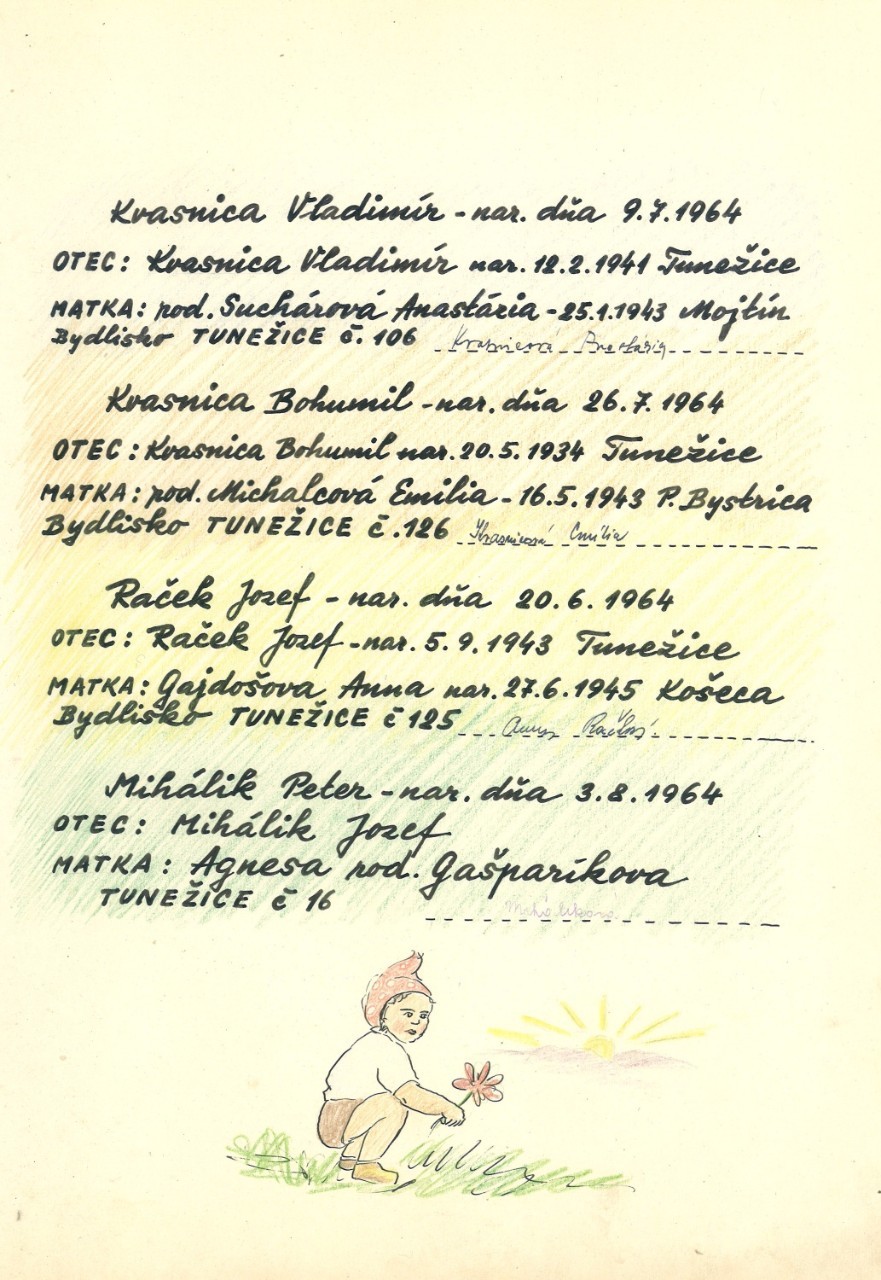 Kvasnica Vladimír - nar. dňa 9.7.1964
OTEC: Kvasnica Vladimír nar. 12.2.1941 Tunežice
MATKA: rod. Suchárová Anastázia - 25.1.1943 Mojtín
Bydlisko TUNEŽICE č. 106 Kvasnicová Anastázia
Kvasnica Bohumil - nar. dňa 26.7.1964
OTEC: Kvasnica Bohumil nar. 20.5.1934 Tunežice
MATKA: rod. Michalcová Emilia - 16.5.1943 P. Bystrica
Bydlisko TUNEŽICE č.126 Kvasnicová Emília
Raček Jozef - nar. dňa 20.6.1964
OTEC: Raček Jozef - nar. 5.9.1943 Tunežice
MATKA: Gajdošova Anna nar. 27.6.1945 Košeca
Bydlisko TUNEŽICE č 125 Anna
Mihálik Peter - nar. dňa 3.8.1964
OTEC: Mihálik Jozef
MATKA: Agnesa rod. Gašparíkova
TUNEŽICE č 16